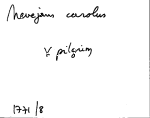 Nevejans carolus
x pilgrim
1771/8